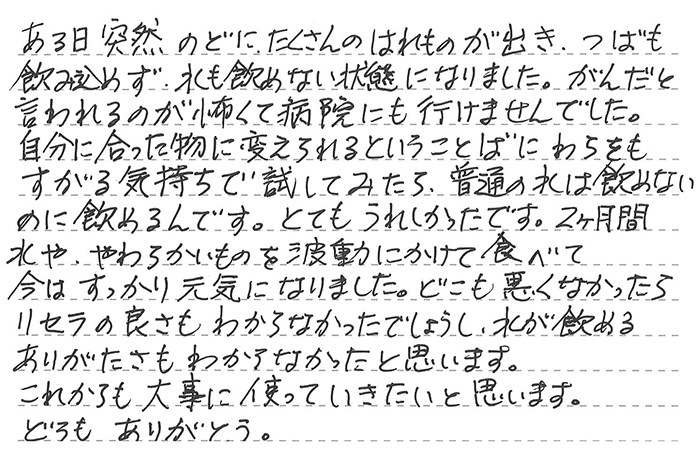 ある日突然のどに、たくさんのはれものが出き、つばも
飲み込めず、水も飲めない状態になりました。がんだと
言われるのが怖くて病院にも行けませんでした。
自分に合った物に変えられるということばにわらをも
すがる気持ちで試してみたら、普通の水は飲めない
のに飲めるんです。とてもうれしかったです。2ヶ月間
水や、やわらかいものを波動にかけて食べて
今はすっかり元気になりました。どこも悪くなかったら
リセラの良さもわからなかったでしょうし、水が飲める
ありがたさもわからなかったと思います。
これからも大事に使っていきたいと思います。
どうもありがとう。